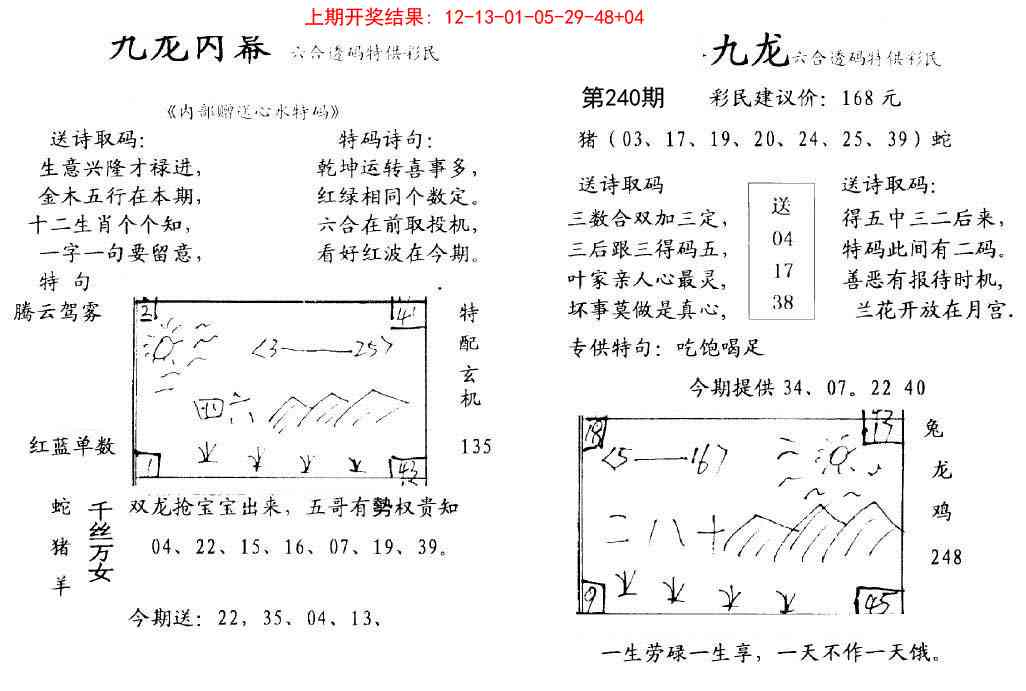 上期开奖结果：12-13-01-05-29-48+04
九龙内幕 六合透码特供彩民
《内部赠送心水特码》
送诗取码：
生意兴隆才禄进，
金木五行在本期，
十二生肖个个知，
一字一句要留意，
特码诗句：
乾坤运转喜事多，
红绿相同个数定。
六合在前取投机，
看好红波在今期。
特 句
腾云驾雾
红蓝单数
2
41
3——25
四六
1
43
特
配
玄
机
135
蛇
猪
羊
千丝万女
双龙抢宝宝出来，五哥有勢权贵知
04、22、15、16、07、19、39。
今期送：22，35、04、13、
九龙 六合透码特供彩民
第240期 彩民建议价：168元
猪（03、17、19、20、24、25、39）蛇
送诗取码
三数合双加三定，
三后跟三得码五，
叶家亲人心最灵，
坏事莫做是真心，
送
04
17
38
送诗取码：
得五中三二后来，
特码此间有二码。
善恶有报待时机，
兰花开放在月宫.
专供特句：吃饱喝足
今期提供 34、07。22 40
18
5——16
二八十
9
45
兔
龙
鸡
248
一生劳碌一生享，一天不作一天饿。